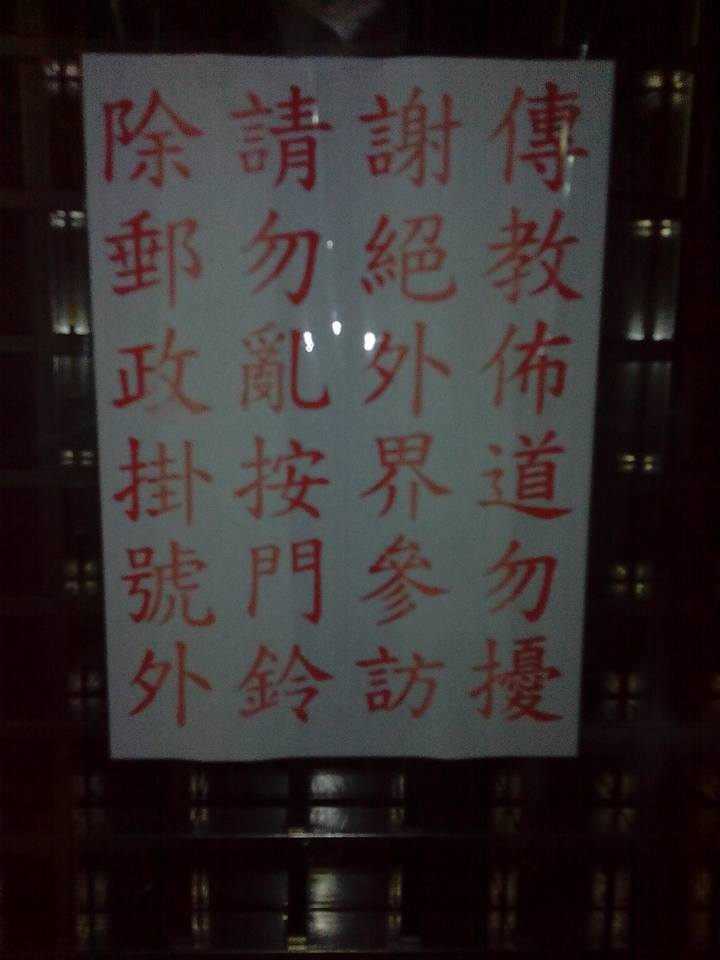 除郵政掛號外
請勿亂按門鈴
謝絕外界參訪
傳教佈道勿擾